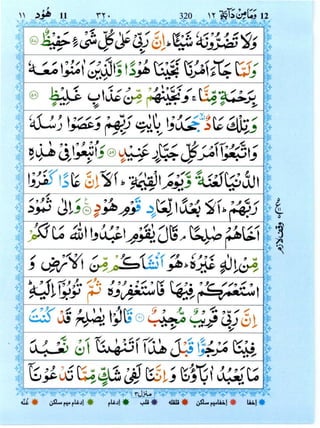 وَمَا مِنْ دَآبَّةٍ 12 ١٢ 320 ٣٢٠ هُوْد 11 ١١
وَلَا تَضُرُّوْنَهٗ شَيْـًٔا ؕ اِنَّ رَبِّيْ عَلٰى كُلِّ شَيْءٍ حَفِيْظٌ ٥٧
وَلَمَّا جَآءَ اَمْرُنَا نَجَّيْنَا هُوْدًا وَّالَّذِيْنَ اٰمَنُوْا مَعَهٗ
بِرَحْمَةٍ مِّنَّا ۚ وَنَجَّيْنٰهُمْ مِّنْ عَذَابٍ غَلِيْظٍ ٥٨
وَتِلْكَ عَادٌ جَحَدُوْا بِاٰيٰتِ رَبِّهِمْ وَعَصَوْا رُسُلَهٗ
وَاتَّبَعُوْٓا اَمْرَ كُلِّ جَبَّارٍ عَنِيْدٍ ٥٩ وَاُتْبِعُوْا فِيْ هٰذِهِ
الدُّنْيَا لَعْنَةً وَّيَوْمَ الْقِيٰمَةِ ؕ اَلَآ اِنَّ عَادًا كَفَرُوْا
رَبَّهُمْ ؕ اَلَا بُعْدًا لِّعَادٍ قَوْمِ هُوْدٍ ٦٠ وَاِلٰى ثَمُوْدَ
اَخَاهُمْ صٰلِحًا ۘ قَالَ يٰقَوْمِ اعْبُدُوا اللّٰهَ مَا لَكُمْ
مِّنْ اِلٰهٍ غَيْرُهٗ ؕ هُوَ اَنْشَاَكُمْ مِّنَ الْاَرْضِ وَ
اسْتَعْمَرَكُمْ فِيْهَا فَاسْتَغْفِرُوْهُ ثُمَّ تُوْبُوْٓا اِلَيْهِ ؕ
اِنَّ رَبِّيْ قَرِيْبٌ مُّجِيْبٌ ٦١ قَالُوْا يٰصٰلِحُ قَدْ كُنْتَ
فِيْنَا مَرْجُوًّا قَبْلَ هٰذَآ اَتَنْهٰىنَآ اَنْ نَّعْبُدَ
مَا يَعْبُدُ اٰبَآؤُنَا وَاِنَّنَا لَفِيْ شَكٍّ مِّمَّا تَدْعُوْنَآ
وقف لازم
منزل ٣
اخفا اخفا میم ساکن قلقلہ قلب ادغام ادغام میم ساکن غنہ